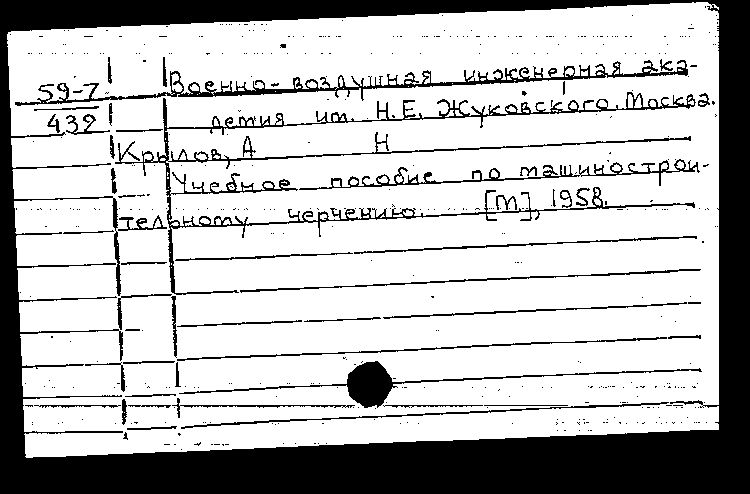 59-7
439
Военно-воздушная инженерная ака-
демия им. Н.Е. Жуковского. Москва.
Крылов, А Н
Учебное пособие по машинострои-
тельному черчению. [М], 1958.